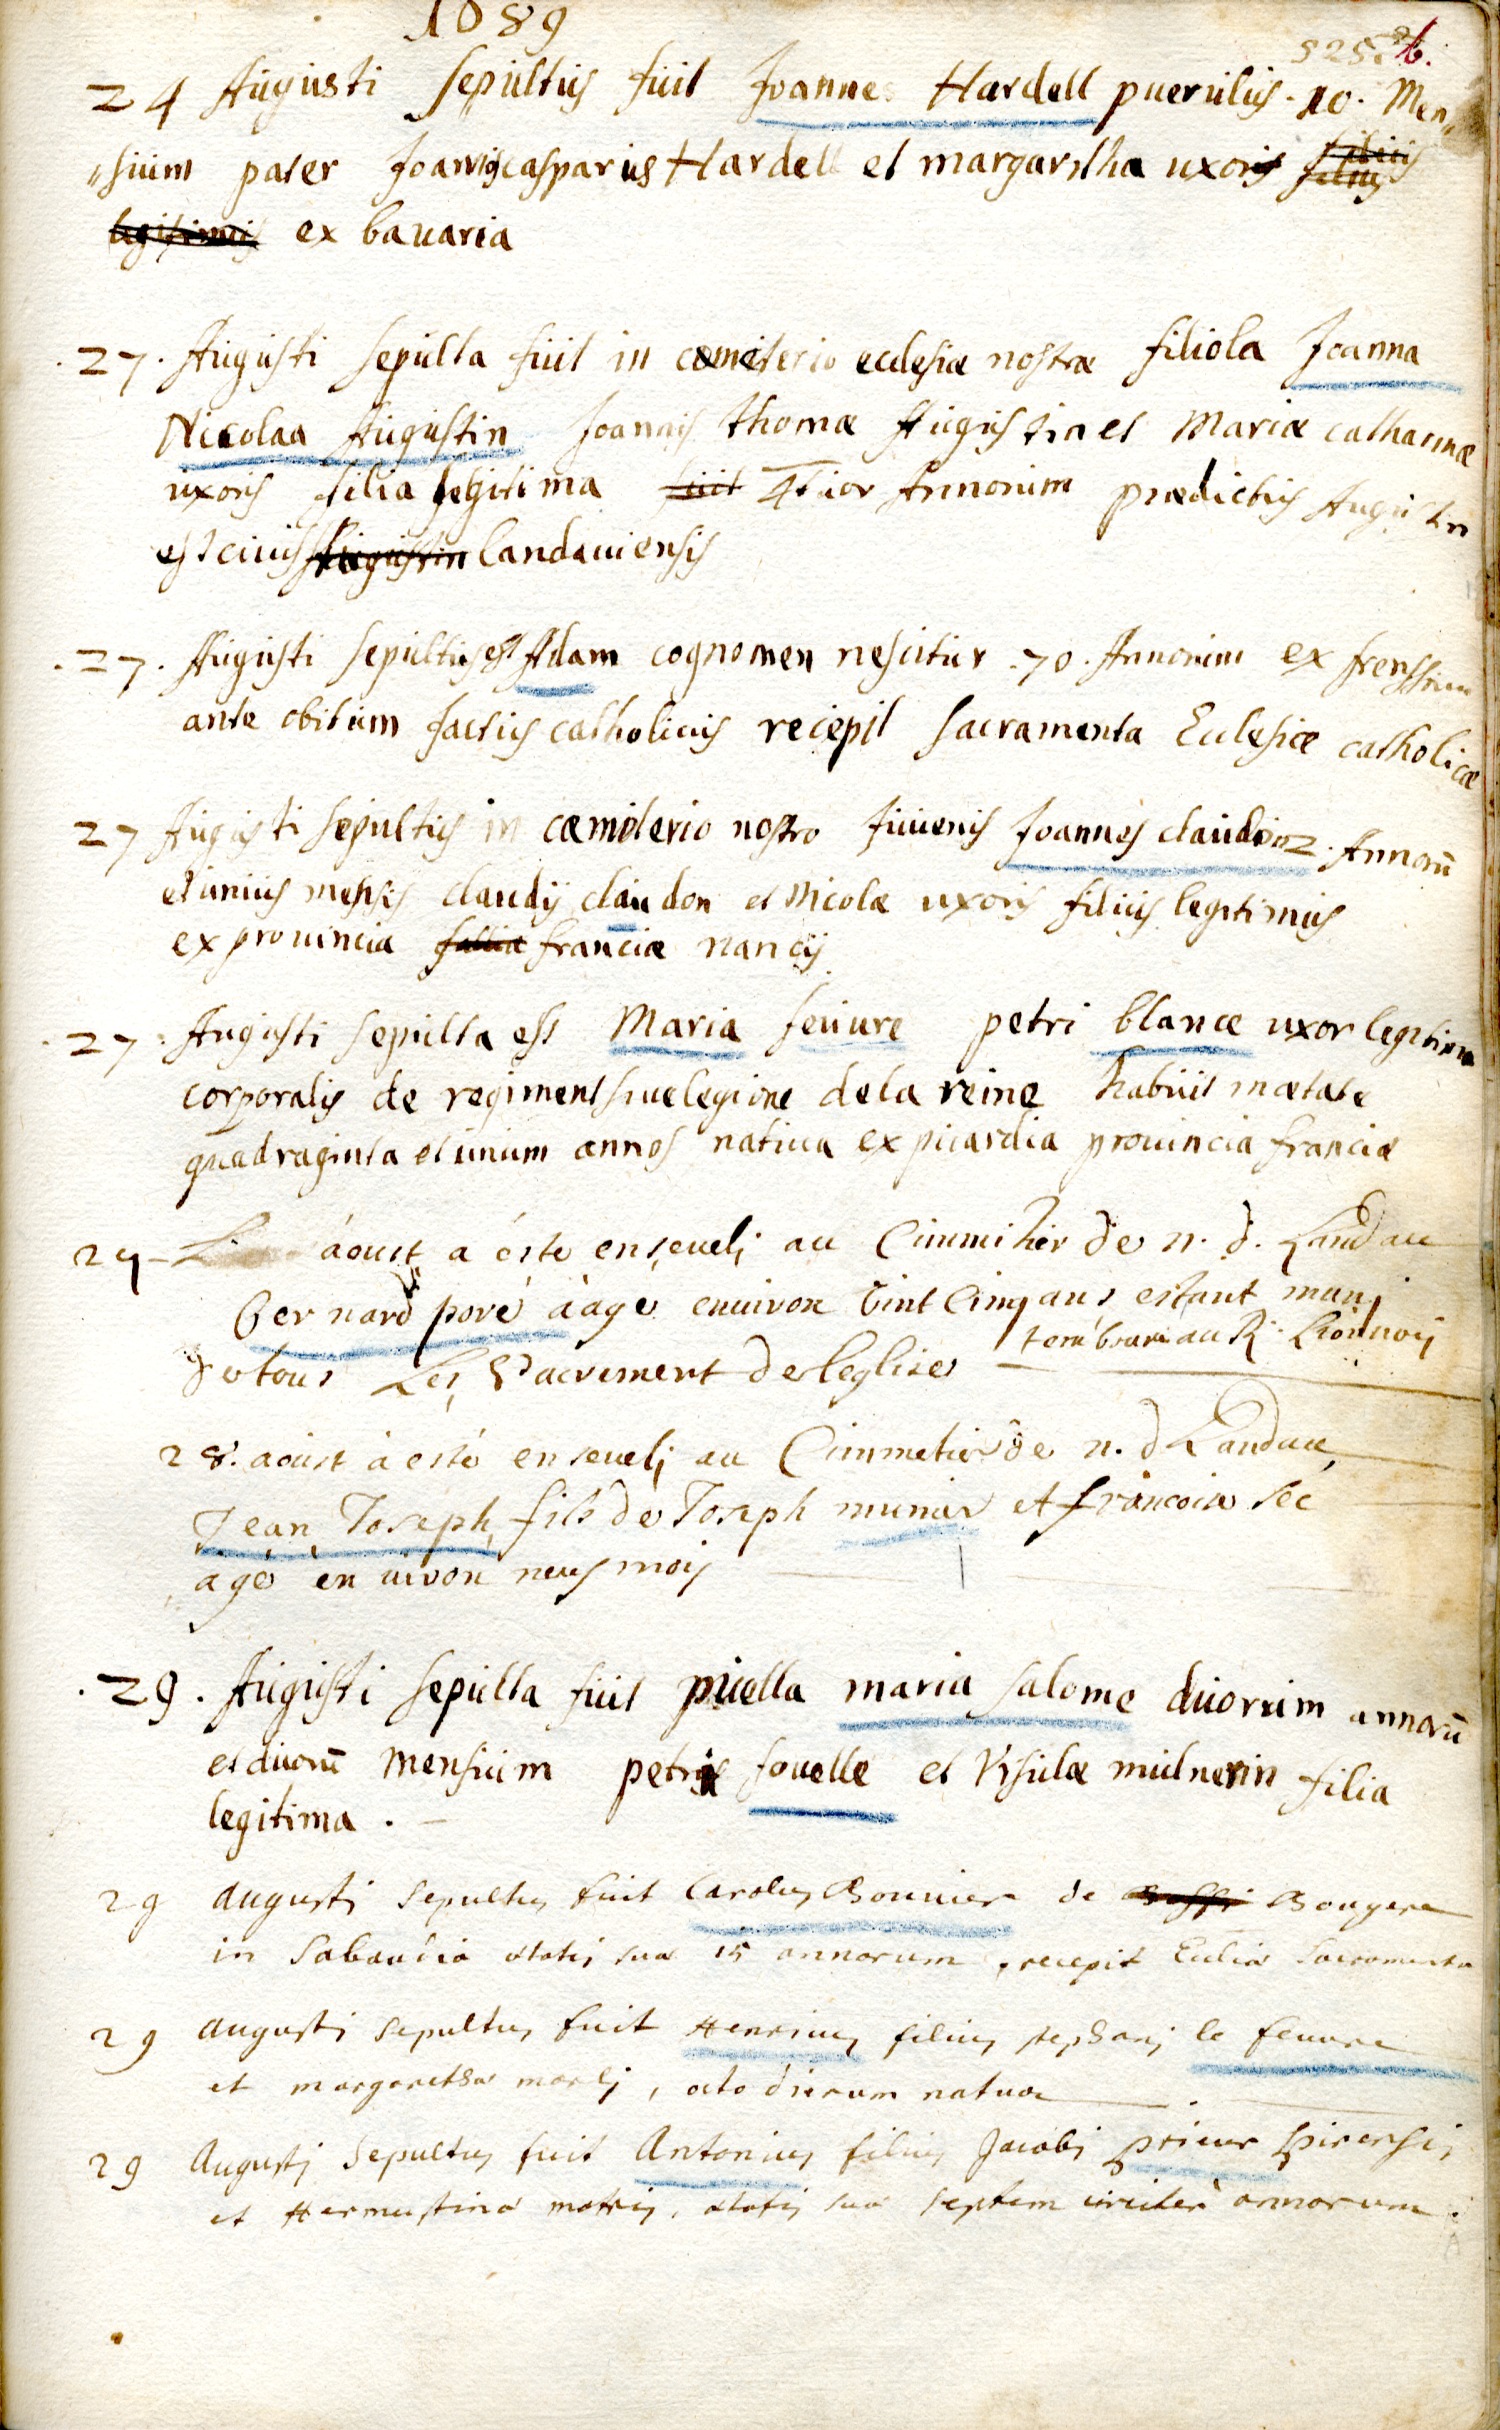 1689
525. 26.
24 Augusti sepultus fuit Joannes Hardell puerulus .10. Men„
„sium pater Joannis casparius Hardell et margaretha uxoris filius
legitimus ex bavaria
.27. Augusti sepulta fuit in cœmeterio ecclesiæ nostræ filiola Joanna
Nicolaa Augustin Joannis thomæ Augustin et Mariæ catharinæ
uxoris filia legitima fuit 4tuor Annorum prædictus Augustin
est civis Augustin landauiensis
.27. Augusti sepultus est Adam cognomen nescitur .70. Annorum ex
ante obitum factus catholicus recepit sacramenta Ecclesiæ catholicæ
27 Augusti sepultus in cæmiterio nostro Juuenis Joannes claudon 2. Annorū
et unius mensis claudij claudon et Nicolæ uxoris filius legitimus
ex prouincia franciæ nancij
.27. Augusti sepulta est Maria feuure petri blance uxor legitima
corporalis de regiment siue legione de la reine habuit in ætate
quadraginta et unum annos natiua ex picardia prouincia franciæ
29 - L aoust a éste enseuelj au Cimmitier de n. d. Landau
Bernard poré aàgé enuiron vint cinq ans estant munj
tembour au R.
de tous Les Sacrement de leglise
28. aoust à esté enseuelj au Cimmetier de n. d Landau,
Jean Joseph fils de Joseph munier et francoise sec
agé en uiron neuf mois
.29. Augusti sepulta fuit puella maria salome duorum annorū
et duorū mensium petri fouelle et Vrsulæ mulnerin filia
legitima .
29 augusti sepultus fuit Carolus Bouuier de Bougere
in Sabaudia ætatis suæ 15 annorum, recepit Ecclia Sacramenta
29 augusti sepultus fuit Henricus filius stephani le feuure
et margaretha marlj, octo dierum natus
29 Augusti sepultus fuit Antonius filius Jacobi prieur
et Hermustina matris, ætatis suæ septem circiter annorum.